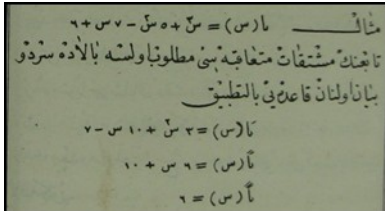 مثال تا (س) = س٣ + ٥ س٢ − ٧ س + ٦
تابعنك مشتقات متعاقبه سنى مطلوب اولسه بالاده سرد و
بيان اولنان قاعده يى بالتطبيق
تا َ (س) = ٣ س٢ + ١٠ س − ٧
تا ً (س) = ٦ س + ١٠
تا (س) = ٦